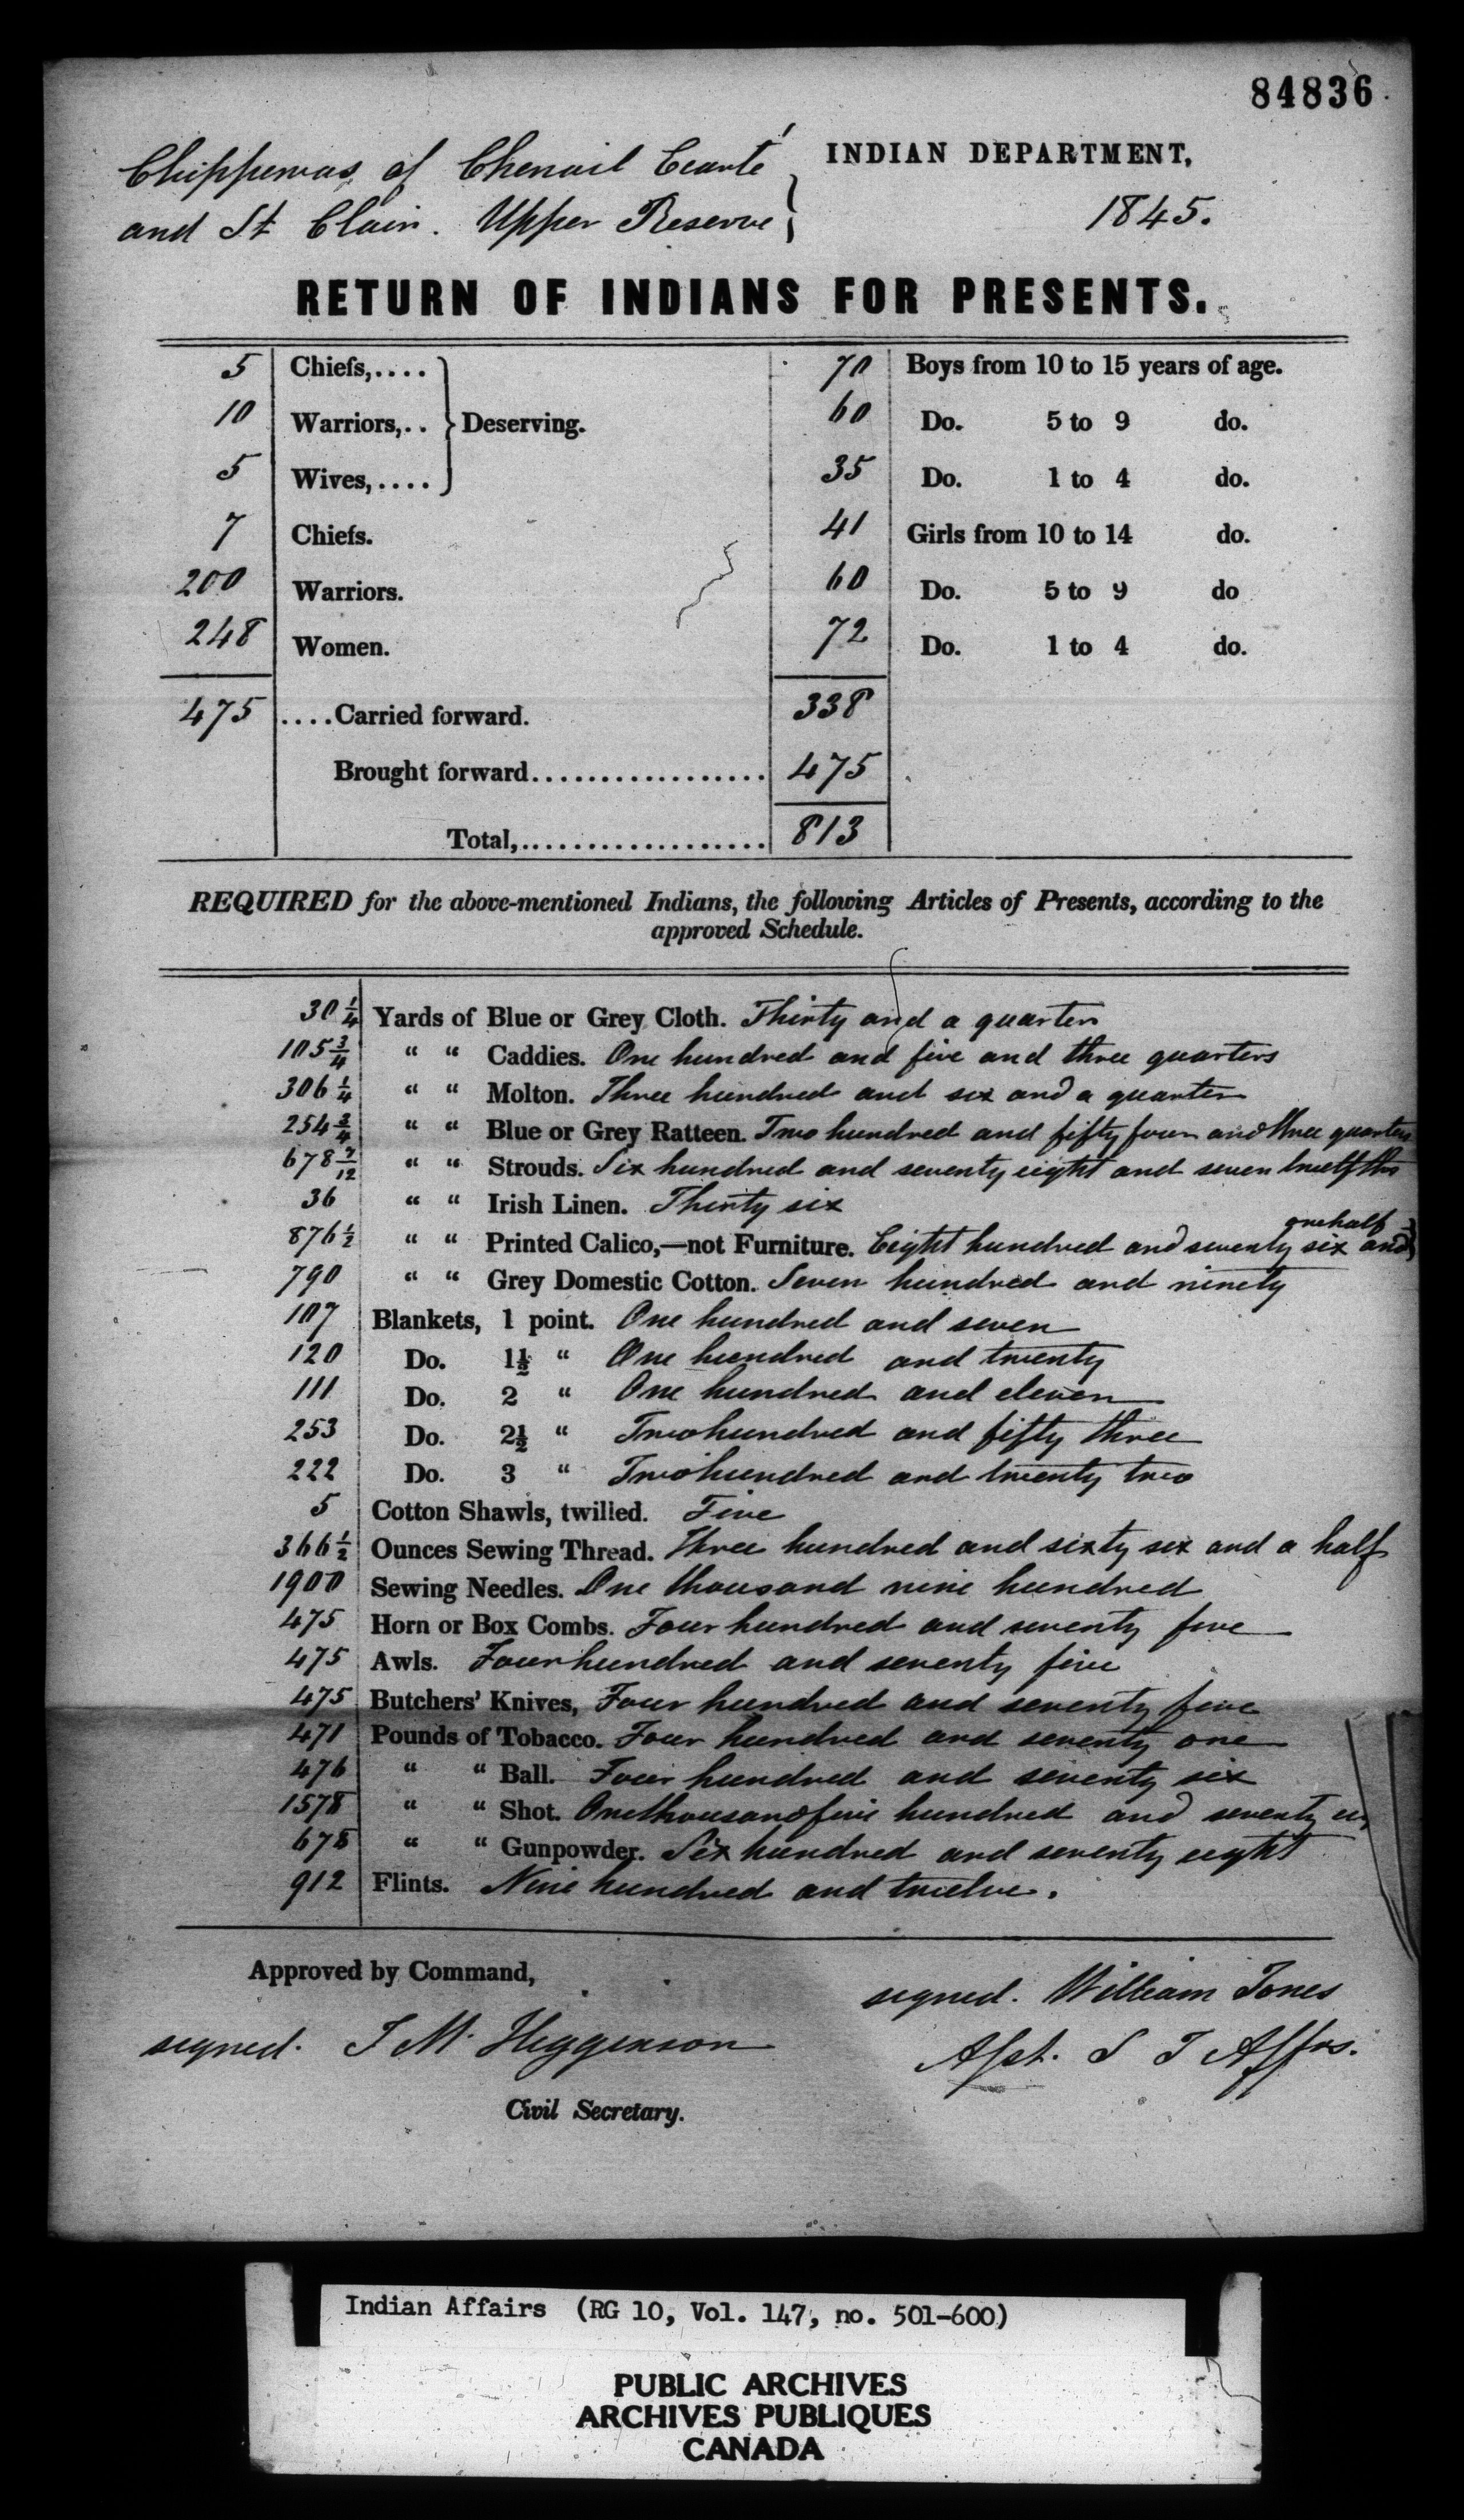 84836
Chippewas of Chenail Ecarté
and St Clair. Upper Reserve
INDIAN DEPARTMENT,
1845.
RETURN OF INDIANS FOR PRESENTS.
5 Chiefs,.... 70 Boys from 10 to 15 years of age.
10 Warriors,.. Deserving. 60 Do. 5 to 9 do.
5 Wives,.... 35 Do. 1 to 4 do.
7 Chiefs. 41 Girls from 10 to 14 do.
200 Warriors. 60 Do. 5 to 9 do
248 Women. 72 Do. 1 to 4 do.
475 ....Carried forward. 338
Brought forward................. 475
Total,................... 813
REQUIRED for the above-mentioned Indians, the following Articles of Presents, according to the
approved Schedule.
30 1/4 Yards of Blue or Grey Cloth. Thirty and a quarter
105 3/4 " " Caddies. One hundred and five and three quarters
306 1/4 " " Molton. Three hundred and six and a quarter
254 3/4 " " Blue or Grey Ratteen. Two hundred and fifty four and three quarters
678 7/12 " " Strouds. Six hundred and seventy eight and seven twelfths
36 " " Irish Linen. Thirty six
876 1/2 " " Printed Calico,—not Furniture. Eight hundred and seventy six and one half
790 " " Grey Domestic Cotton. Seven hundred and ninety
107 Blankets, 1 point. One hundred and seven
120 Do. 1½ " One hundred and twenty
111 Do. 2 " One hundred and eleven
253 Do. 2½ " Two hundred and fifty three
222 Do. 3 " Two hundred and twenty two
5 Cotton Shawls, twilled. Five
366 1/2 Ounces Sewing Thread. Three hundred and sixty six and a half
1900 Sewing Needles. One thousand nine hundred
475 Horn or Box Combs. Four hundred and seventy five
475 Awls. Four hundred and seventy five
475 Butchers' Knives, Four hundred and seventy five
471 Pounds of Tobacco. Four hundred and seventy one
476 " " Ball. Four hundred and seventy six
1578 " " Shot. One thousand five hundred and seventy
678 " " Gunpowder. Six hundred and seventy eight
912 Flints. Nine hundred and twelve.
Approved by Command,
signed. William Jones
signed. J M. Higginson
Asst. S I Affrs.
Civil Secretary.
Indian Affairs (RG 10, Vol. 147, no. 501-600)
PUBLIC ARCHIVES
ARCHIVES PUBLIQUES
CANADA